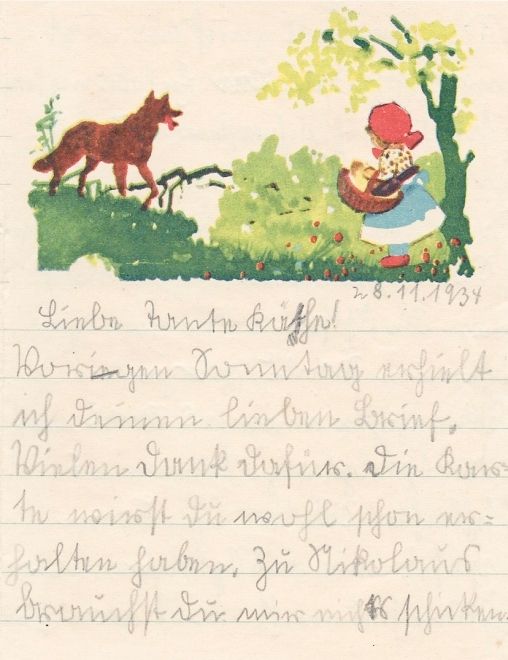 28.11.1934
Liebe Tante Käthe!
Vorigen Sonntag erhielt
ich deinen lieben Brief.
Vielen Dank dafür. Die Kar-
te wirst du wohl schon er=
halten haben. Zu Nikolaus
brauchst du mir nichts schicken.